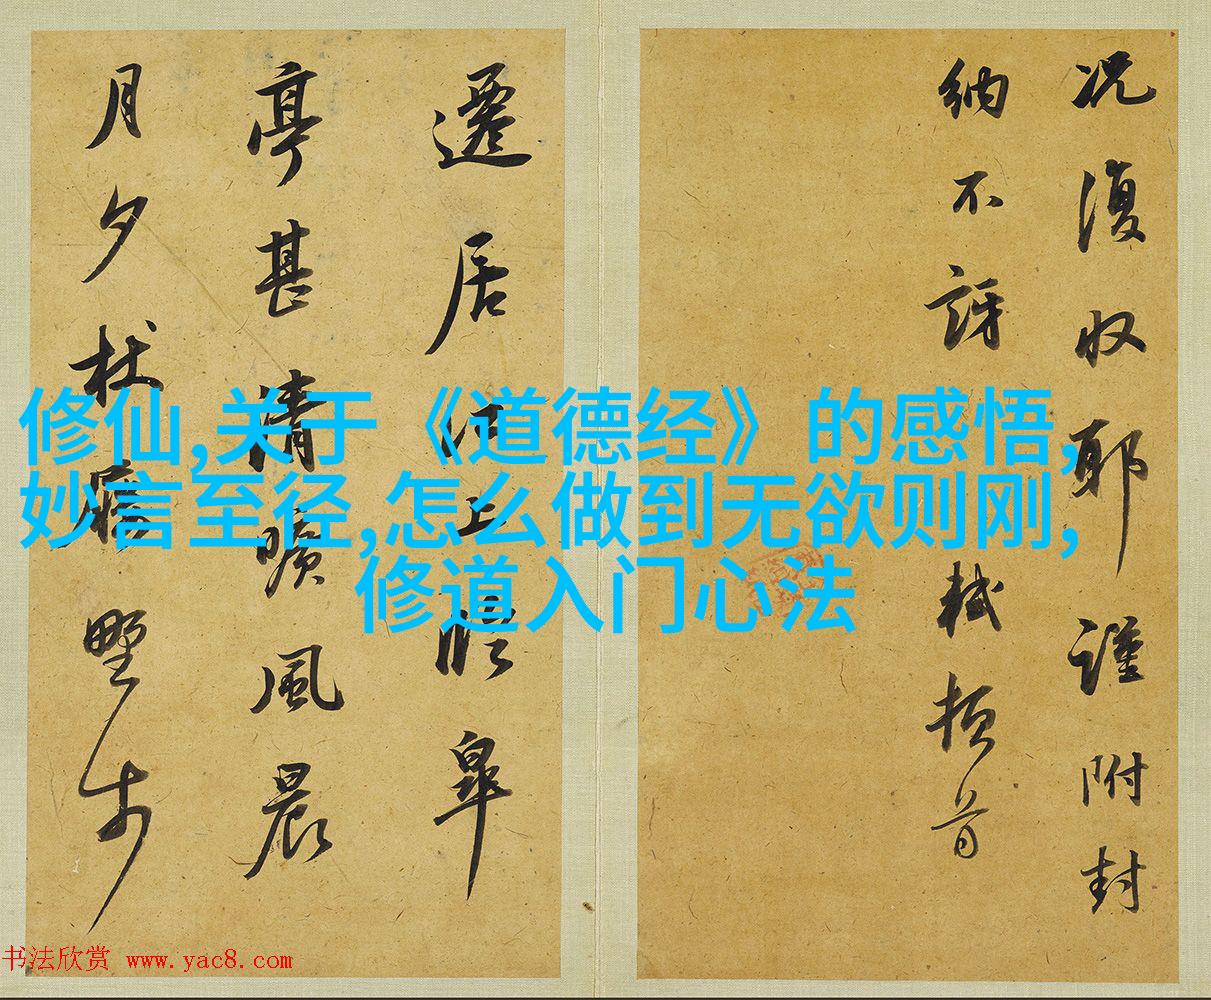 况復收耶謹附封
納不訝軾頓首
遷居江上臨皋
亭甚清曠風晨
月夕杖屨野步
修仙,关于《道德经》的感悟,
妙言至径,怎么做到无欲则刚,
修道入门心法
书法欣赏 www.yac8.com